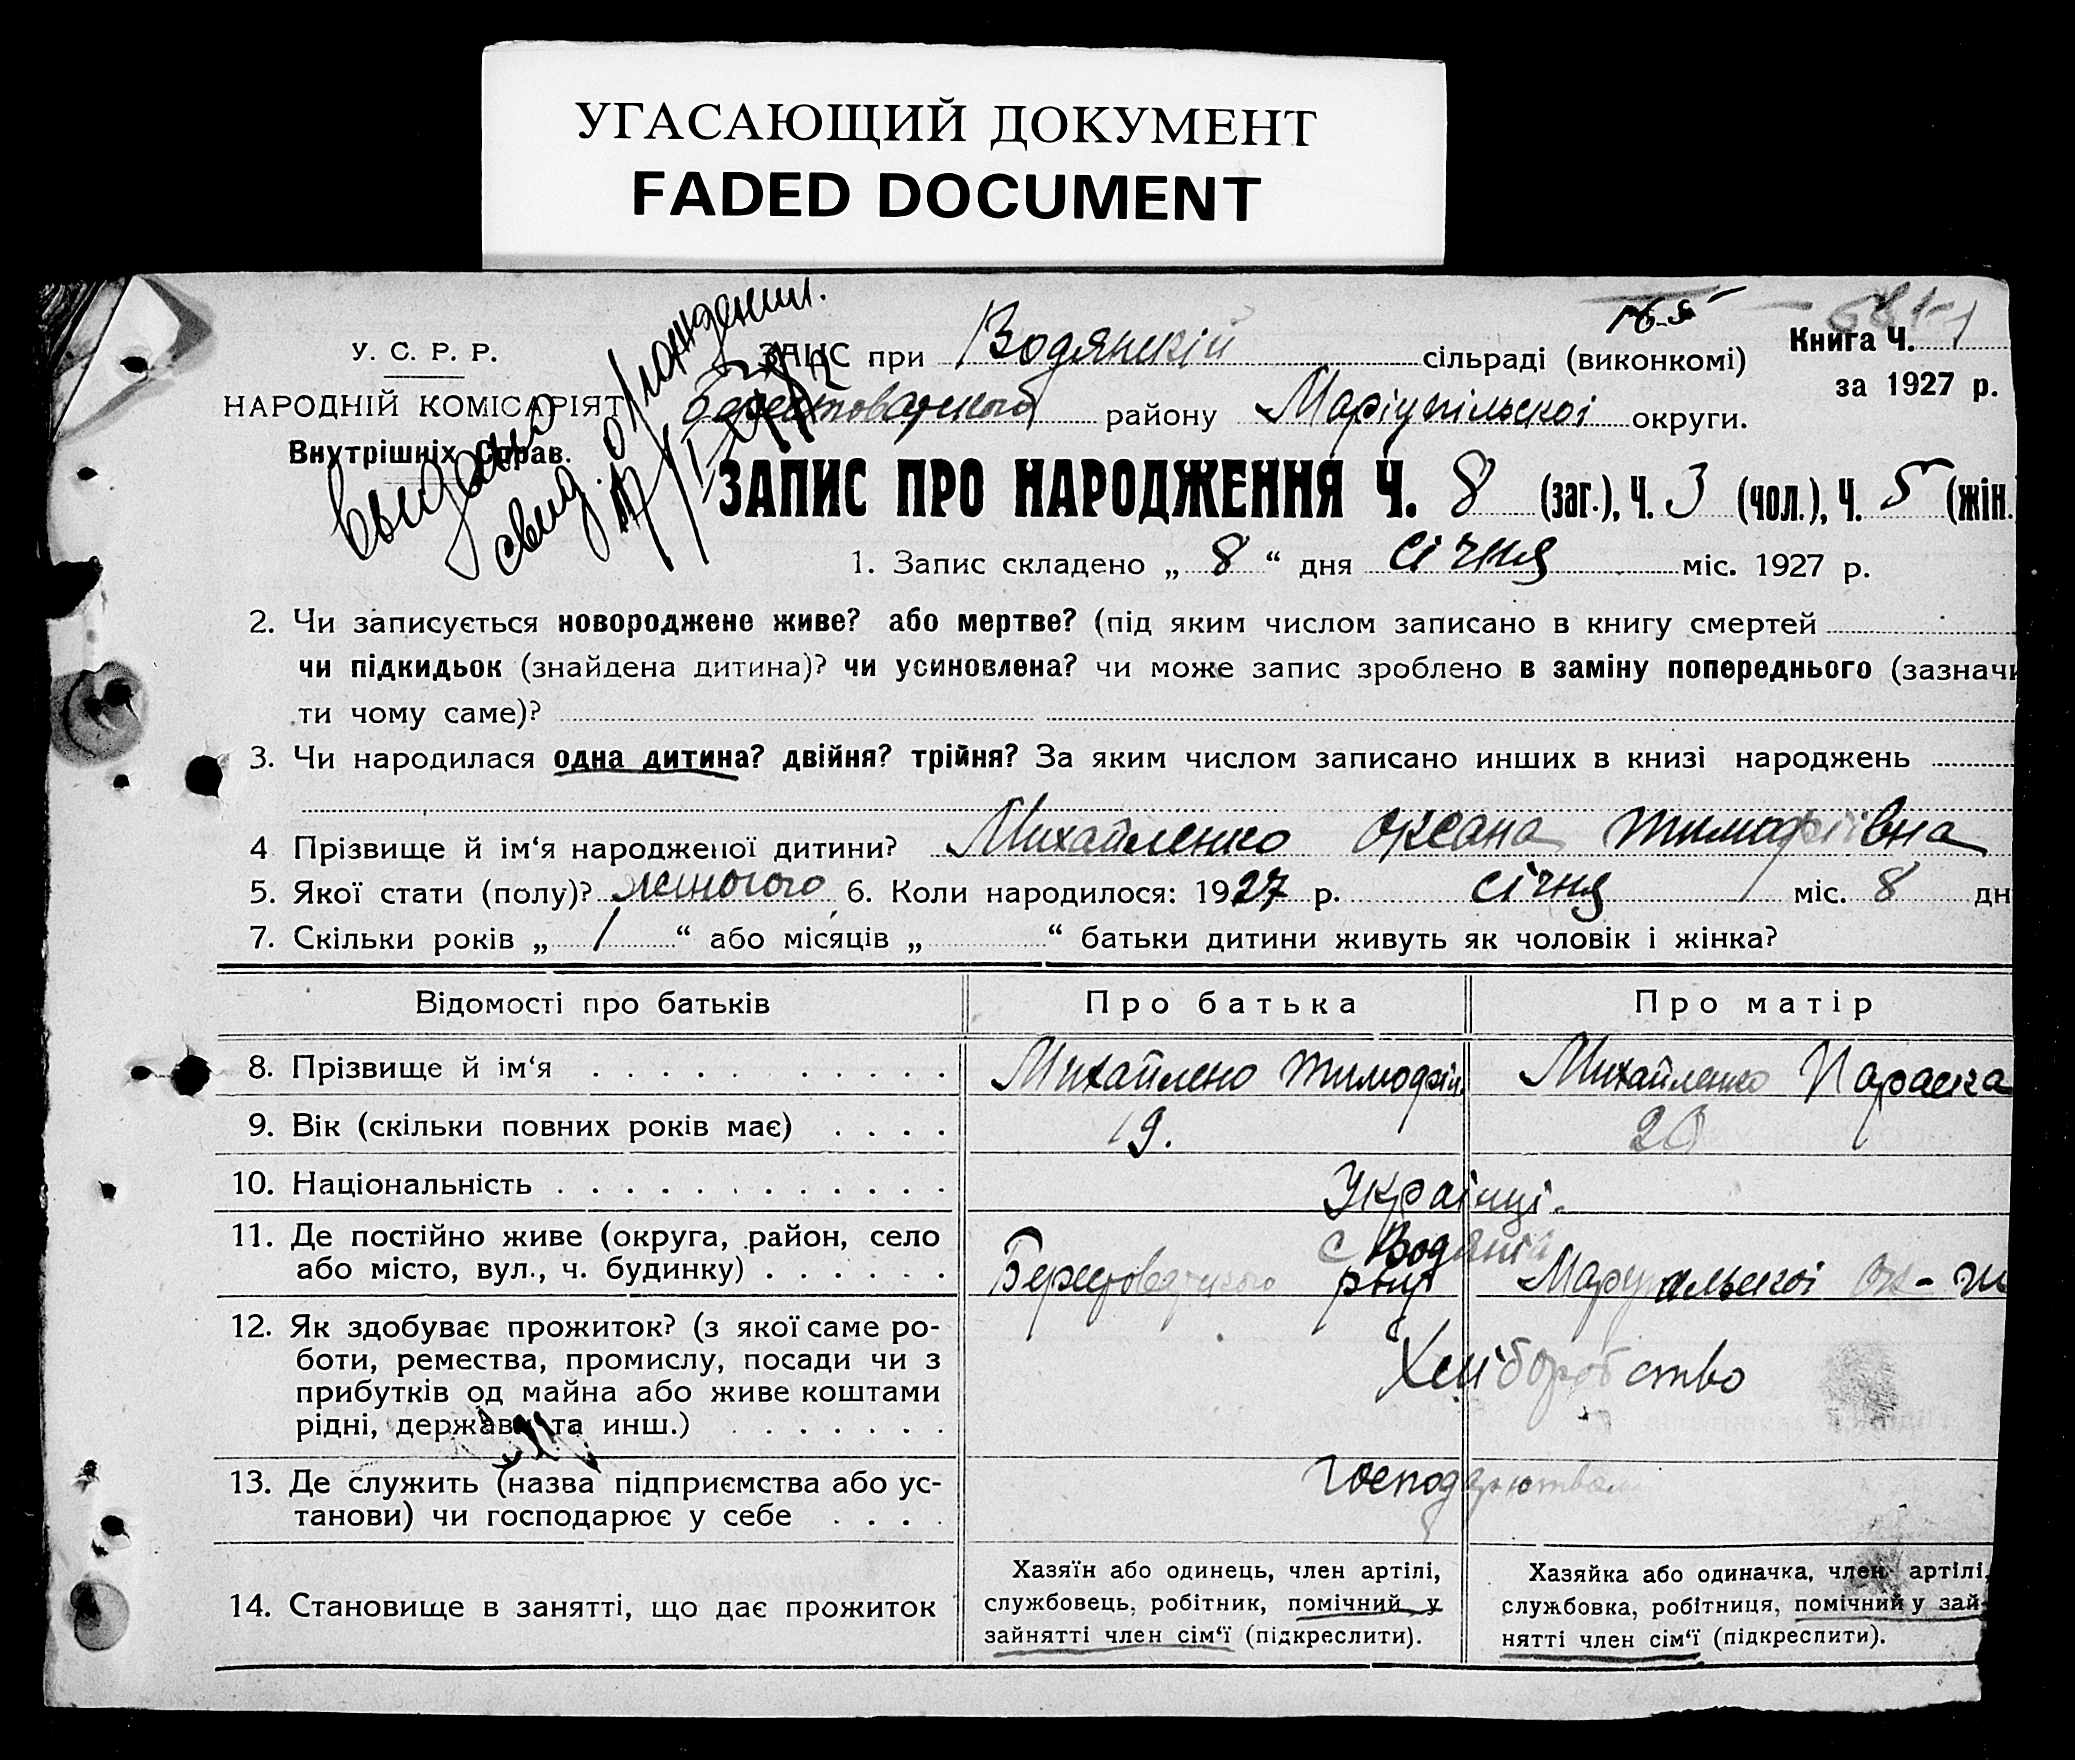 УГАСАЮЩИЙ ДОКУМЕНТ
FADED DOCUMENT
У. С. Р. Р.
НАРОДНІЙ КОМІСАРІЯТ
Внутрішніх Справ.
выдано
свид. о рождении.
ЗАПИС при Водянскій сільраді (виконкомі)
району Маріупільскоі округи.
Книга Ч.
за 1927 р.
ЗАПИС ПРО НАРОДЖЕННЯ Ч. 8 (заг.), Ч. 3 (чол.), Ч. 5 (жін.
1. Запис складено „ 8 “ дня січня міс. 1927 р.
2. Чи записується новороджене живе? або мертве? (під яким числом записано в книгу смертей
чи підкидьок (знайдена дитина)? чи усиновлена? чи може запис зроблено в заміну попереднього (зазначи
ти чому саме)?
3. Чи народилася одна дитина? двійня? трійня? За яким числом записано инших в книзі народжень
4 Прізвище й ім‘я народженої дитини? Михайленко Оксана Тимофіівна
5. Якої стати (полу)? жіночого 6. Коли народилося: 1927 р. січня міс. 8 дн
7. Скільки років „ 1 “ або місяців „ “ батьки дитини живуть як чоловік і жінка?
Відомості про батьків Про батька Про матір
8. Прізвище й ім‘я Михайлено Тимофій Михайленко Параска
9. Вік (скільки повних років має) 19. 20
10. Національність Украінці.
11. Де постійно живе (округа, район, село с Водяній
або місто, вул., ч. будинку) Берестоватского рну Маріупильскоі ок-
12. Як здобуває прожиток? (з якої саме ро-
боти, ремества, промислу, посади чи з Хліборобство
прибутків од майна або живе коштами
рідні, держави та инш.)
13. Де служить (назва підприємства або ус-
танови) чи господарює у себе
14. Становище в занятті, що дає прожиток
Хазяїн або одинець, член артілі,
службовець, робітник, помічний у
зайнятті член сім‘ї (підкреслити).
Хазяйка або одиначка, член артілі,
службовка, робітниця, помічний у зай-
нятті член сім‘ї (підкреслити).